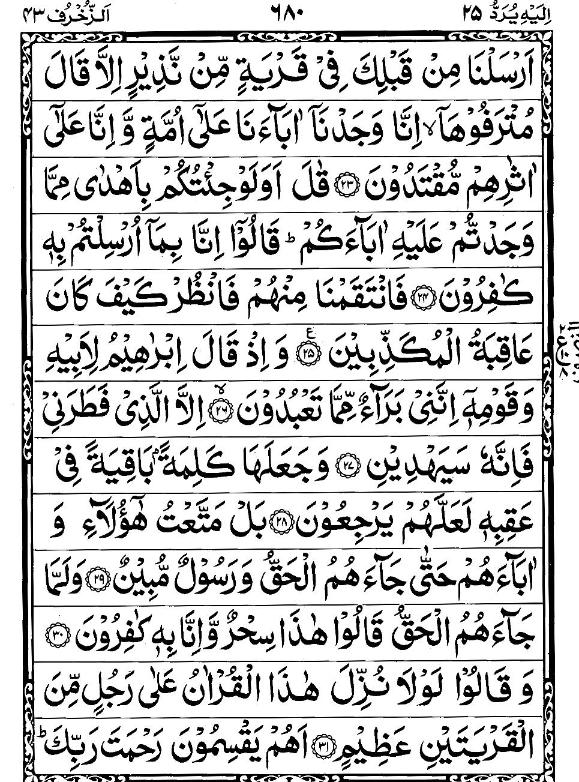 اِلَیْهِ یُرَدُّ ۲۵
۶۸۰
اَلزُّخْرُف ۴۳
اَرْسَلْنَا مِنْ قَبْلِكَ فِیْ قَرْیَةٍ مِّنْ نَّذِیْرٍ اِلَّا قَالَ
مُتْرَفُوْهَاۤ ۙ اِنَّا وَجَدْنَاۤ اٰبَآءَنَا عَلٰۤی اُمَّةٍ وَّ اِنَّا عَلٰۤی
اٰثٰرِهِمْ مُّقْتَدُوْنَ ﴿۲۳﴾ قٰلَ اَوَلَوْ جِئْتُكُمْ بِاَهْدٰی مِمَّا
وَجَدْتُّمْ عَلَیْهِ اٰبَآءَكُمْ ؕ قَالُوْۤا اِنَّا بِمَاۤ اُرْسِلْتُمْ بِهٖ
كٰفِرُوْنَ ﴿۲۴﴾ فَانْتَقَمْنَا مِنْهُمْ فَانْظُرْ كَیْفَ كَانَ
عَاقِبَةُ الْمُكَذِّبِیْنَ ﴿۲۵﴾ ع وَ اِذْ قَالَ اِبْرٰهِیْمُ لِاَبِیْهِ
وَ قَوْمِهٖۤ اِنَّنِیْ بَرَآءٌ مِّمَّا تَعْبُدُوْنَ ﴿۲۶﴾ ۙ اِلَّا الَّذِیْ فَطَرَنِیْ
فَاِنَّهٗ سَیَهْدِیْنِ ﴿۲۷﴾ وَ جَعَلَهَا كَلِمَةًۢ بَاقِیَةً فِیْ
عَقِبِهٖ لَعَلَّهُمْ یَرْجِعُوْنَ ﴿۲۸﴾ بَلْ مَتَّعْتُ هٰۤؤُلَآءِ وَ
اٰبَآءَهُمْ حَتّٰی جَآءَهُمُ الْحَقُّ وَ رَسُوْلٌ مُّبِیْنٌ ﴿۲۹﴾ وَ لَمَّا
جَآءَهُمُ الْحَقُّ قَالُوْا هٰذَا سِحْرٌ وَّ اِنَّا بِهٖ كٰفِرُوْنَ ﴿۳۰﴾
وَ قَالُوْا لَوْلَا نُزِّلَ هٰذَا الْقُرْاٰنُ عَلٰی رَجُلٍ مِّنَ
الْقَرْیَتَیْنِ عَظِیْمٍ ﴿۳۱﴾ اَهُمْ یَقْسِمُوْنَ رَحْمَتَ رَبِّكَ ؕ